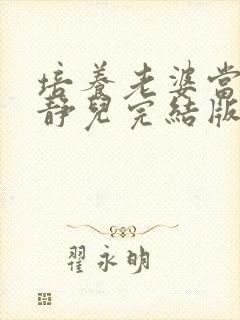 培養老婆當
靜兒完結版
翟永明